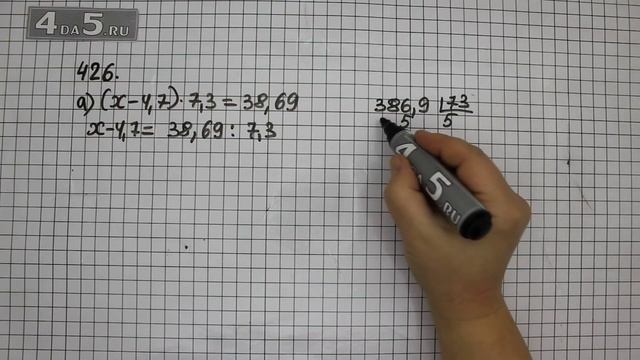 4DA5.RU
426.
а) (x-4,7)·7,3=38,69
x-4,7= 38,69 : 7,3
386,9 73
5 5
4DA5.RU